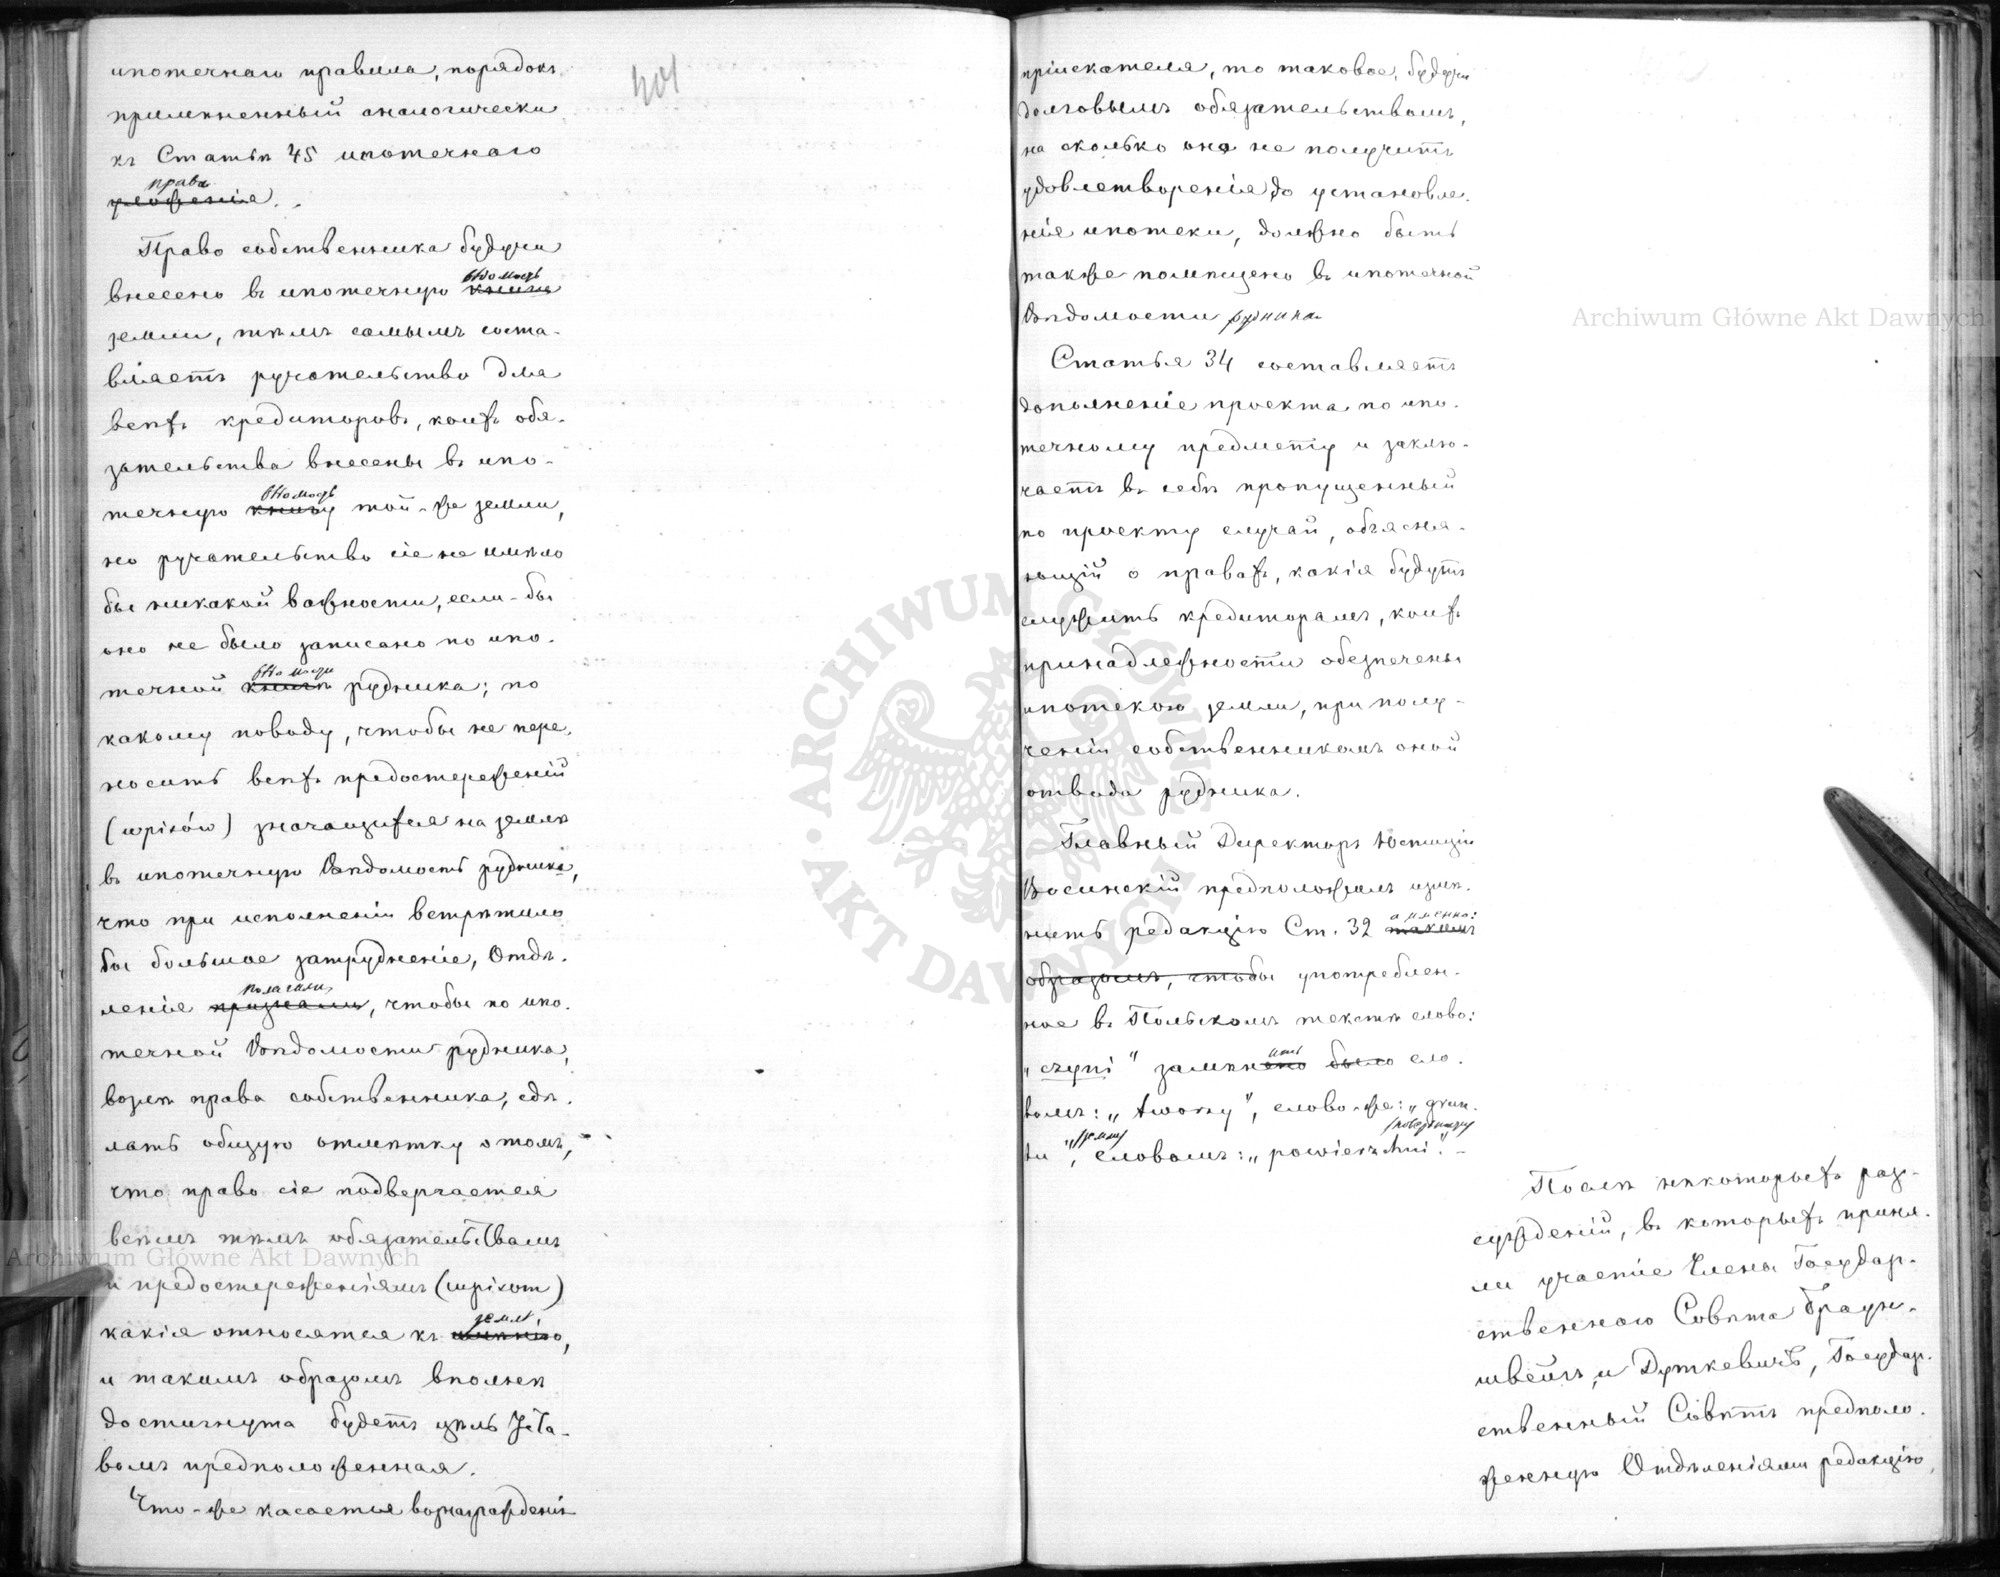 ипотечнаго правила, порядокъ
401
примѣненный аналогически
къ Статьѣ 45 ипотечнаго
права
уложенія.
Право собственника будучи
вѣдомость
внесено въ ипотечную книгу
земли, тѣмъ самымъ соста-
вляетъ ручательство для
всѣхъ кредиторовъ, коихъ обя-
зательства внесены въ ипо-
вѣдомость
течную книгу той-же земли,
но ручательство сіе не имѣло
бы никакой важности, если-бы
оно не было записано по ипо-
вѣдомости
течной книгѣ рудника; по
какому поводу, чтобы не пере-
носить всѣхъ предостереженій
(wpisów) значащихся на землѣ
въ ипотечную Вѣдомость рудника,
что при исполненіи встрѣтило
бы большое затрудненіе, Отдѣ-
полагали
леніе признали, чтобы по ипо-
течной Вѣдомости рудника,
возлѣ права собственника, сдѣ-
лать общую отмѣтку о томъ,
что право сіе подвергается
всѣмъ тѣмъ обязательствамъ
и предостереженіямъ (wpisom)
землѣ,
какія относятся къ имѣнію,
и такимъ образомъ вполнѣ
достигнута будетъ цѣль Уста-
вомъ предположенная.
Что-же касается вознагражденія
пріискателя, то таковое, будучи
долговымъ обязательствомъ,
на сколько оно не получитъ
удовлетворенія до установле-
нія ипотеки, должно быть
также помѣщено въ ипотечной
Вѣдомости рудника.
Archiwum Główne Akt Dawnych
Статья 34 составляетъ
дополненіе проекта по ипо-
течному предмету и заклю-
чаетъ въ себѣ пропущенный
по проекту случай, объясня-
ющій о правахъ, какія будутъ
служить кредиторамъ, коихъ
принадлежности обезпечены
ипотекою земли, при полу-
ченіи собственникомъ оной
отвода рудника.
Главный Директоръ Юстиціи
Восинскій предположилъ измѣ-
а именно:
нить редакцію Ст. 32 такимъ
образомъ, чтобы употреблен-
ное въ Польскомъ текстѣ слово:
ить
замѣнено было сло-
вомъ: „tworzy", слово-же: „grun-
(землю) (поверхности)
tu", словомъ: „powierzchni". -
Послѣ нѣкоторыхъ раз-
сужденій, въ которыхъ приня-
ли участіе Члены Государ-
ственнаго Совѣта Браун-
швейгъ и Дуткевичъ, Государ-
ственный Совѣтъ предполо-
женную Отдѣленіями редакцію
ARCHIWUM GŁÓWNE · AKT DAWNYCH ·
Archiwum Główne Akt Dawnych